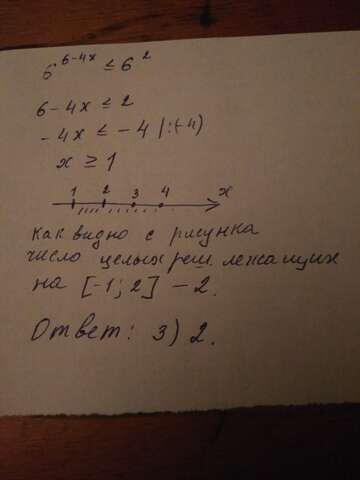 6^{6-4x} ≤ 6^2
6-4x ≤ 2
-4x ≤ -4 |:(-4)
x ≥ 1
1 2 3 4 x
как видно с рисунка
число целых реш. лежащих
на [-1; 2] - 2.
Ответ: 3) 2.